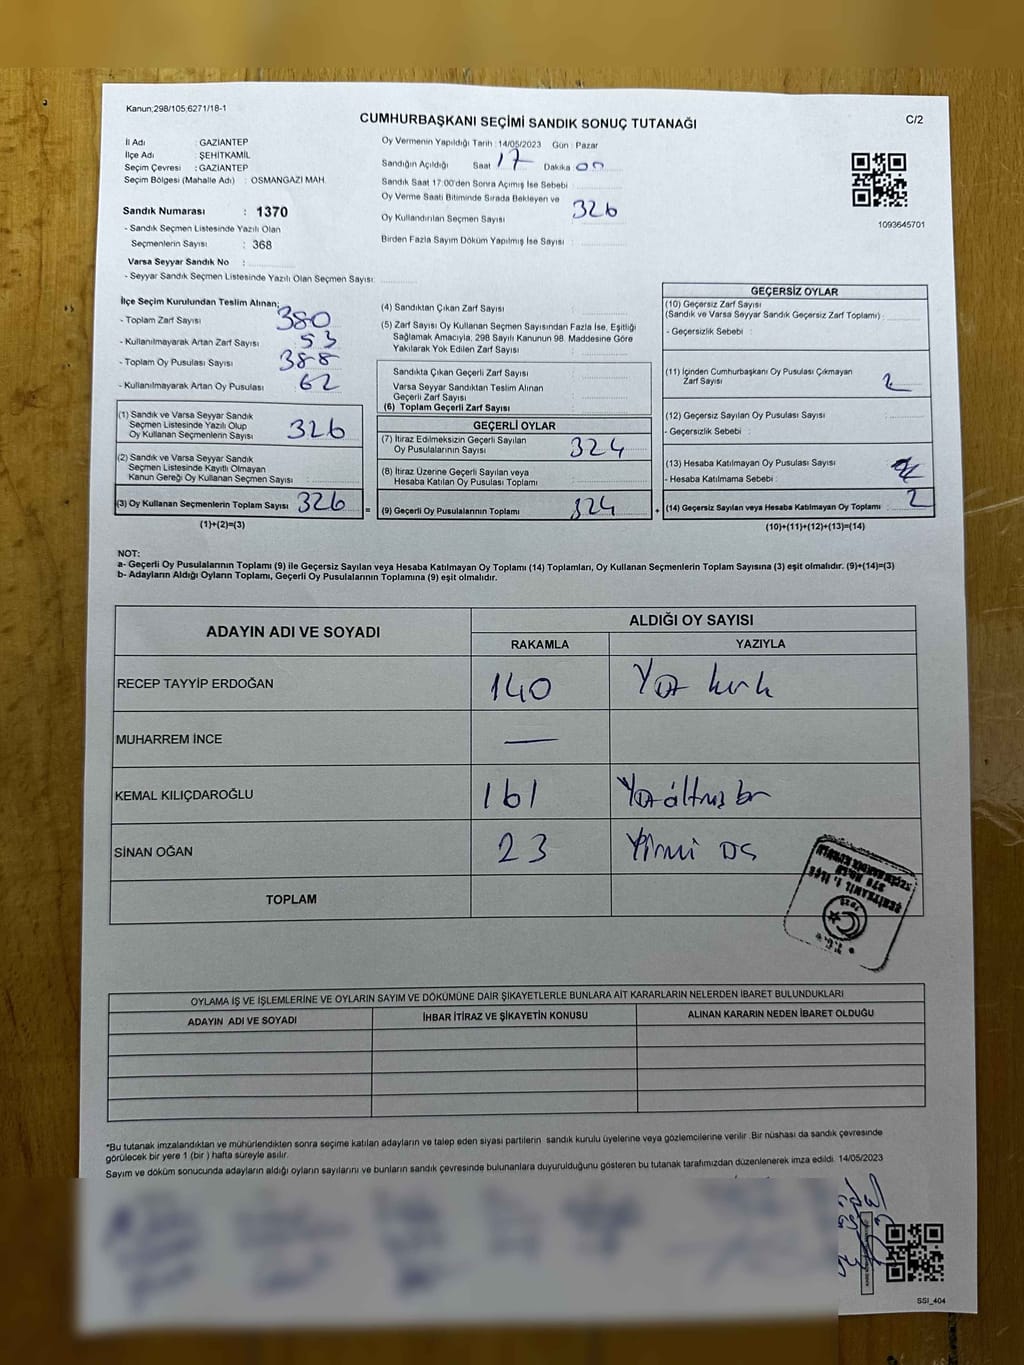 Kanun;298/105;6271/18-1
CUMHURBAŞKANI SEÇİMİ SANDIK SONUÇ TUTANAĞI
C/2
İl Adı : GAZIANTEP
İlçe Adı : ŞEHİTKAMİL
Seçim Çevresi : GAZIANTEP
Seçim Bölgesi (Mahalle Adı) : OSMANGAZI MAH.
Sandık Numarası : 1370
- Sandık Seçmen Listesinde Yazılı Olan
Seçmenlerin Sayısı : 368
Varsa Seyyar Sandık No :
- Seyyar Sandık Seçmen Listesinde Yazılı Olan Seçmen Sayısı:
Oy Vermenin Yapıldığı Tarih : 14/05/2023 Gün : Pazar
Sandığın Açıldığı Saat 17 Dakika 00
Sandık Saat 17:00'den Sonra Açımış İse Sebebi :
Oy Verme Saati Bitiminde Sırada Bekleyen ve
Oy Kullandırılan Seçmen Sayısı : 326
Birden Fazla Sayım Döküm Yapılmış İse Sayısı :
1093645701
İlçe Seçim Kurulundan Teslim Alınan;
- Toplam Zarf Sayısı : 380
- Kullanılmayarak Artan Zarf Sayısı : 53
- Toplam Oy Pusulası Sayısı : 388
- Kullanılmayarak Artan Oy Pusulası : 62
(1) Sandık ve Varsa Seyyar Sandık
Seçmen Listesinde Yazılı Olup
Oy Kullanan Seçmenlerin Sayısı : 326
(2) Sandık ve Varsa Seyyar Sandık
Seçmen Listesinde Kayıtlı Olmayan
Kanun Gereği Oy Kullanan Seçmen Sayısı :
(3) Oy Kullanan Seçmenlerin Toplam Sayısı : 326
(1)+(2)=(3)
(4) Sandıktan Çıkan Zarf Sayısı :
(5) Zarf Sayısı Oy Kullanan Seçmen Sayısından Fazla İse, Eşitliği
Sağlamak Amacıyla, 298 Sayılı Kanunun 98. Maddesine Göre
Yakılarak Yok Edilen Zarf Sayısı :
Sandıkta Çıkan Geçerli Zarf Sayısı :
Varsa Seyyar Sandıktan Teslim Alınan
Geçerli Zarf Sayısı :
(6) Toplam Geçerli Zarf Sayısı :
GEÇERLİ OYLAR
(7) İtiraz Edilmeksizin Geçerli Sayılan
Oy Pusulalarının Sayısı : 324
(8) İtiraz Üzerine Geçerli Sayılan veya
Hesaba Katılan Oy Pusulası Toplamı :
= (9) Geçerli Oy Pusulalarının Toplamı : 324
GEÇERSİZ OYLAR
(10) Geçersiz Zarf Sayısı
(Sandık ve Varsa Seyyar Sandık Geçersiz Zarf Toplamı) :
- Geçersizlik Sebebi :
(11) İçinden Cumhurbaşkanı Oy Pusulası Çıkmayan
Zarf Sayısı : 2
(12) Geçersiz Sayılan Oy Pusulası Sayısı :
- Geçersizlik Sebebi :
(13) Hesaba Katılmayan Oy Pusulası Sayısı :
- Hesaba Katılmama Sebebi :
+ (14) Geçersiz Sayılan veya Hesaba Katılmayan Oy Toplamı : 2
(10)+(11)+(12)+(13)=(14)
NOT:
a- Geçerli Oy Pusulalarının Toplamı (9) ile Geçersiz Sayılan veya Hesaba Katılmayan Oy Toplamı (14) Toplamları, Oy Kullanan Seçmenlerin Toplam Sayısına (3) eşit olmalıdır. (9)+(14)=(3)
b- Adayların Aldığı Oyların Toplamı, Geçerli Oy Pusulalarının Toplamına (9) eşit olmalıdır.
ADAYIN ADI VE SOYADI
ALDIĞI OY SAYISI
RAKAMLA YAZIYLA
RECEP TAYYİP ERDOĞAN 140 Yüz kırk
MUHARREM İNCE —
KEMAL KILIÇDAROĞLU 161 Yüz altmış bir
SİNAN OĞAN 23 Yirmi üç
TOPLAM
OYLAMA İŞ VE İŞLEMLERİNE VE OYLARIN SAYIM VE DÖKÜMÜNE DAİR ŞİKAYETLERLE BUNLARA AİT KARARLARIN NELERDEN İBARET BULUNDUKLARI
ADAYIN ADI VE SOYADI İHBAR İTİRAZ VE ŞİKAYETİN KONUSU ALINAN KARARIN NEDEN İBARET OLDUĞU
*Bu tutanak imzalandıktan ve mühürlendikten sonra seçime katılan adayların ve talep eden siyasi partilerin sandık kurulu üyelerine veya gözlemcilerine verilir .Bir nüshası da sandık çevresinde
görülecek bir yere 1 (bir ) hafta süreyle asılır.
Sayım ve döküm sonucunda adayların aldığı oyların sayılarını ve bunların sandık çevresinde bulunanlara duyurulduğunu gösteren bu tutanak tarafımızdan düzenlenerek imza edildi. 14/05/2023
SSI_404